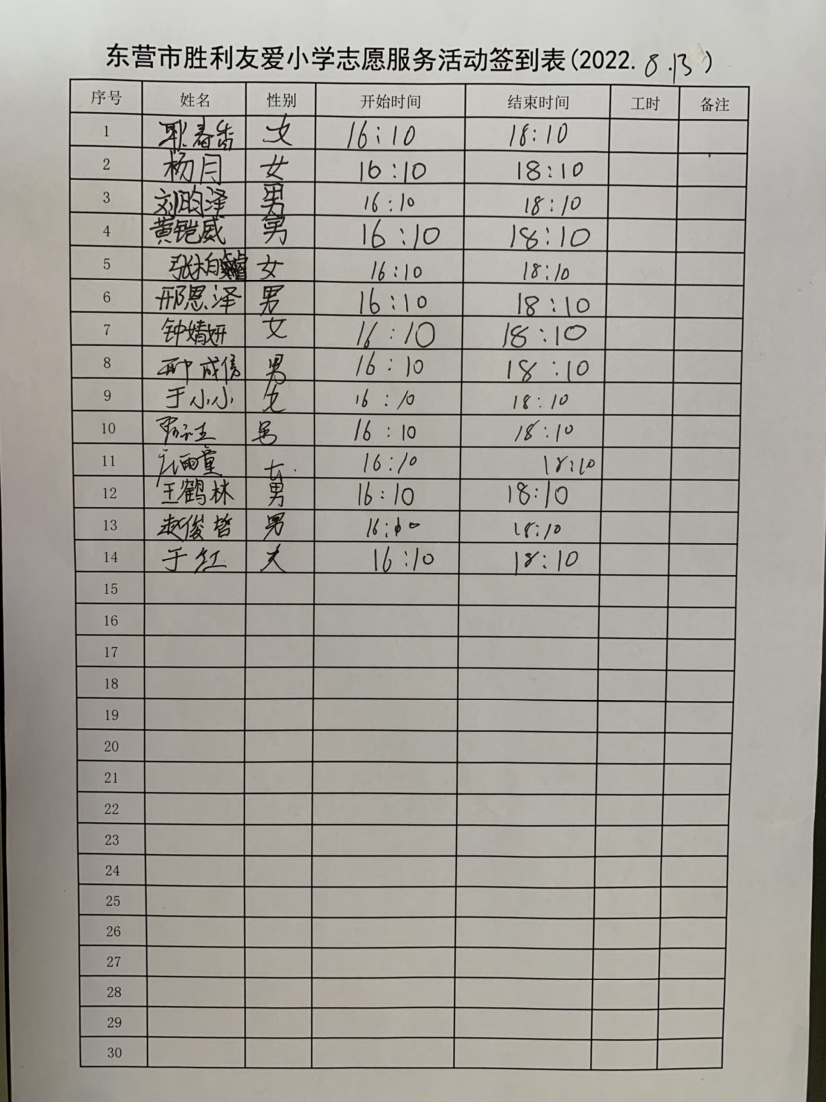 东营市胜利友爱小学志愿服务活动签到表(2022.8.13)
序号 姓名 性别 开始时间 结束时间 工时 备注
1 耿春香 女 16:10 18:10
2 杨月 女 16:10 18:10
3 刘昀泽 男 16:10 18:10
4 黄铠威 男 16:10 18:10
5 张柏 女 16:10 18:10
6 邢恩泽 男 16:10 18:10
7 钟婧妍 女 16:10 18:10
8 成信 男 16:10 18:10
9 于小小 女 16:10 18:10
10 男 16:10 18:10
11 雨童 女 16:10 18:10
12 王鹤林 男 16:10 18:10
13 赵俊哲 男 16:10 18:10
14 于红 女 16:10 18:10
15
16
17
18
19
20
21
22
23
24
25
26
27
28
29
30